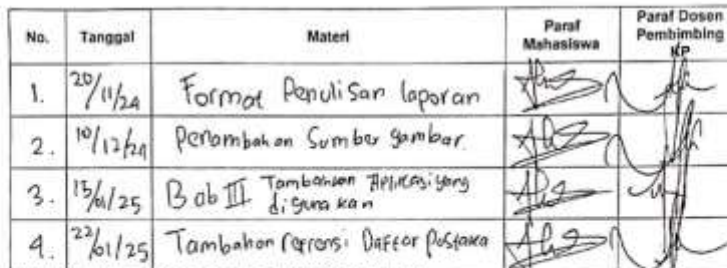 No. Tanggal Materi Paraf Mahasiswa Paraf Dosen Pembimbing KP
1. 20/11/24 Format Penulisan laporan
2. 10/12/24 Penambahan Sumber gambar
3. 15/01/25 Bab III Tambahkan Aplikasi yang digunakan
4. 22/01/25 Tambahan referensi Daftar Pustaka